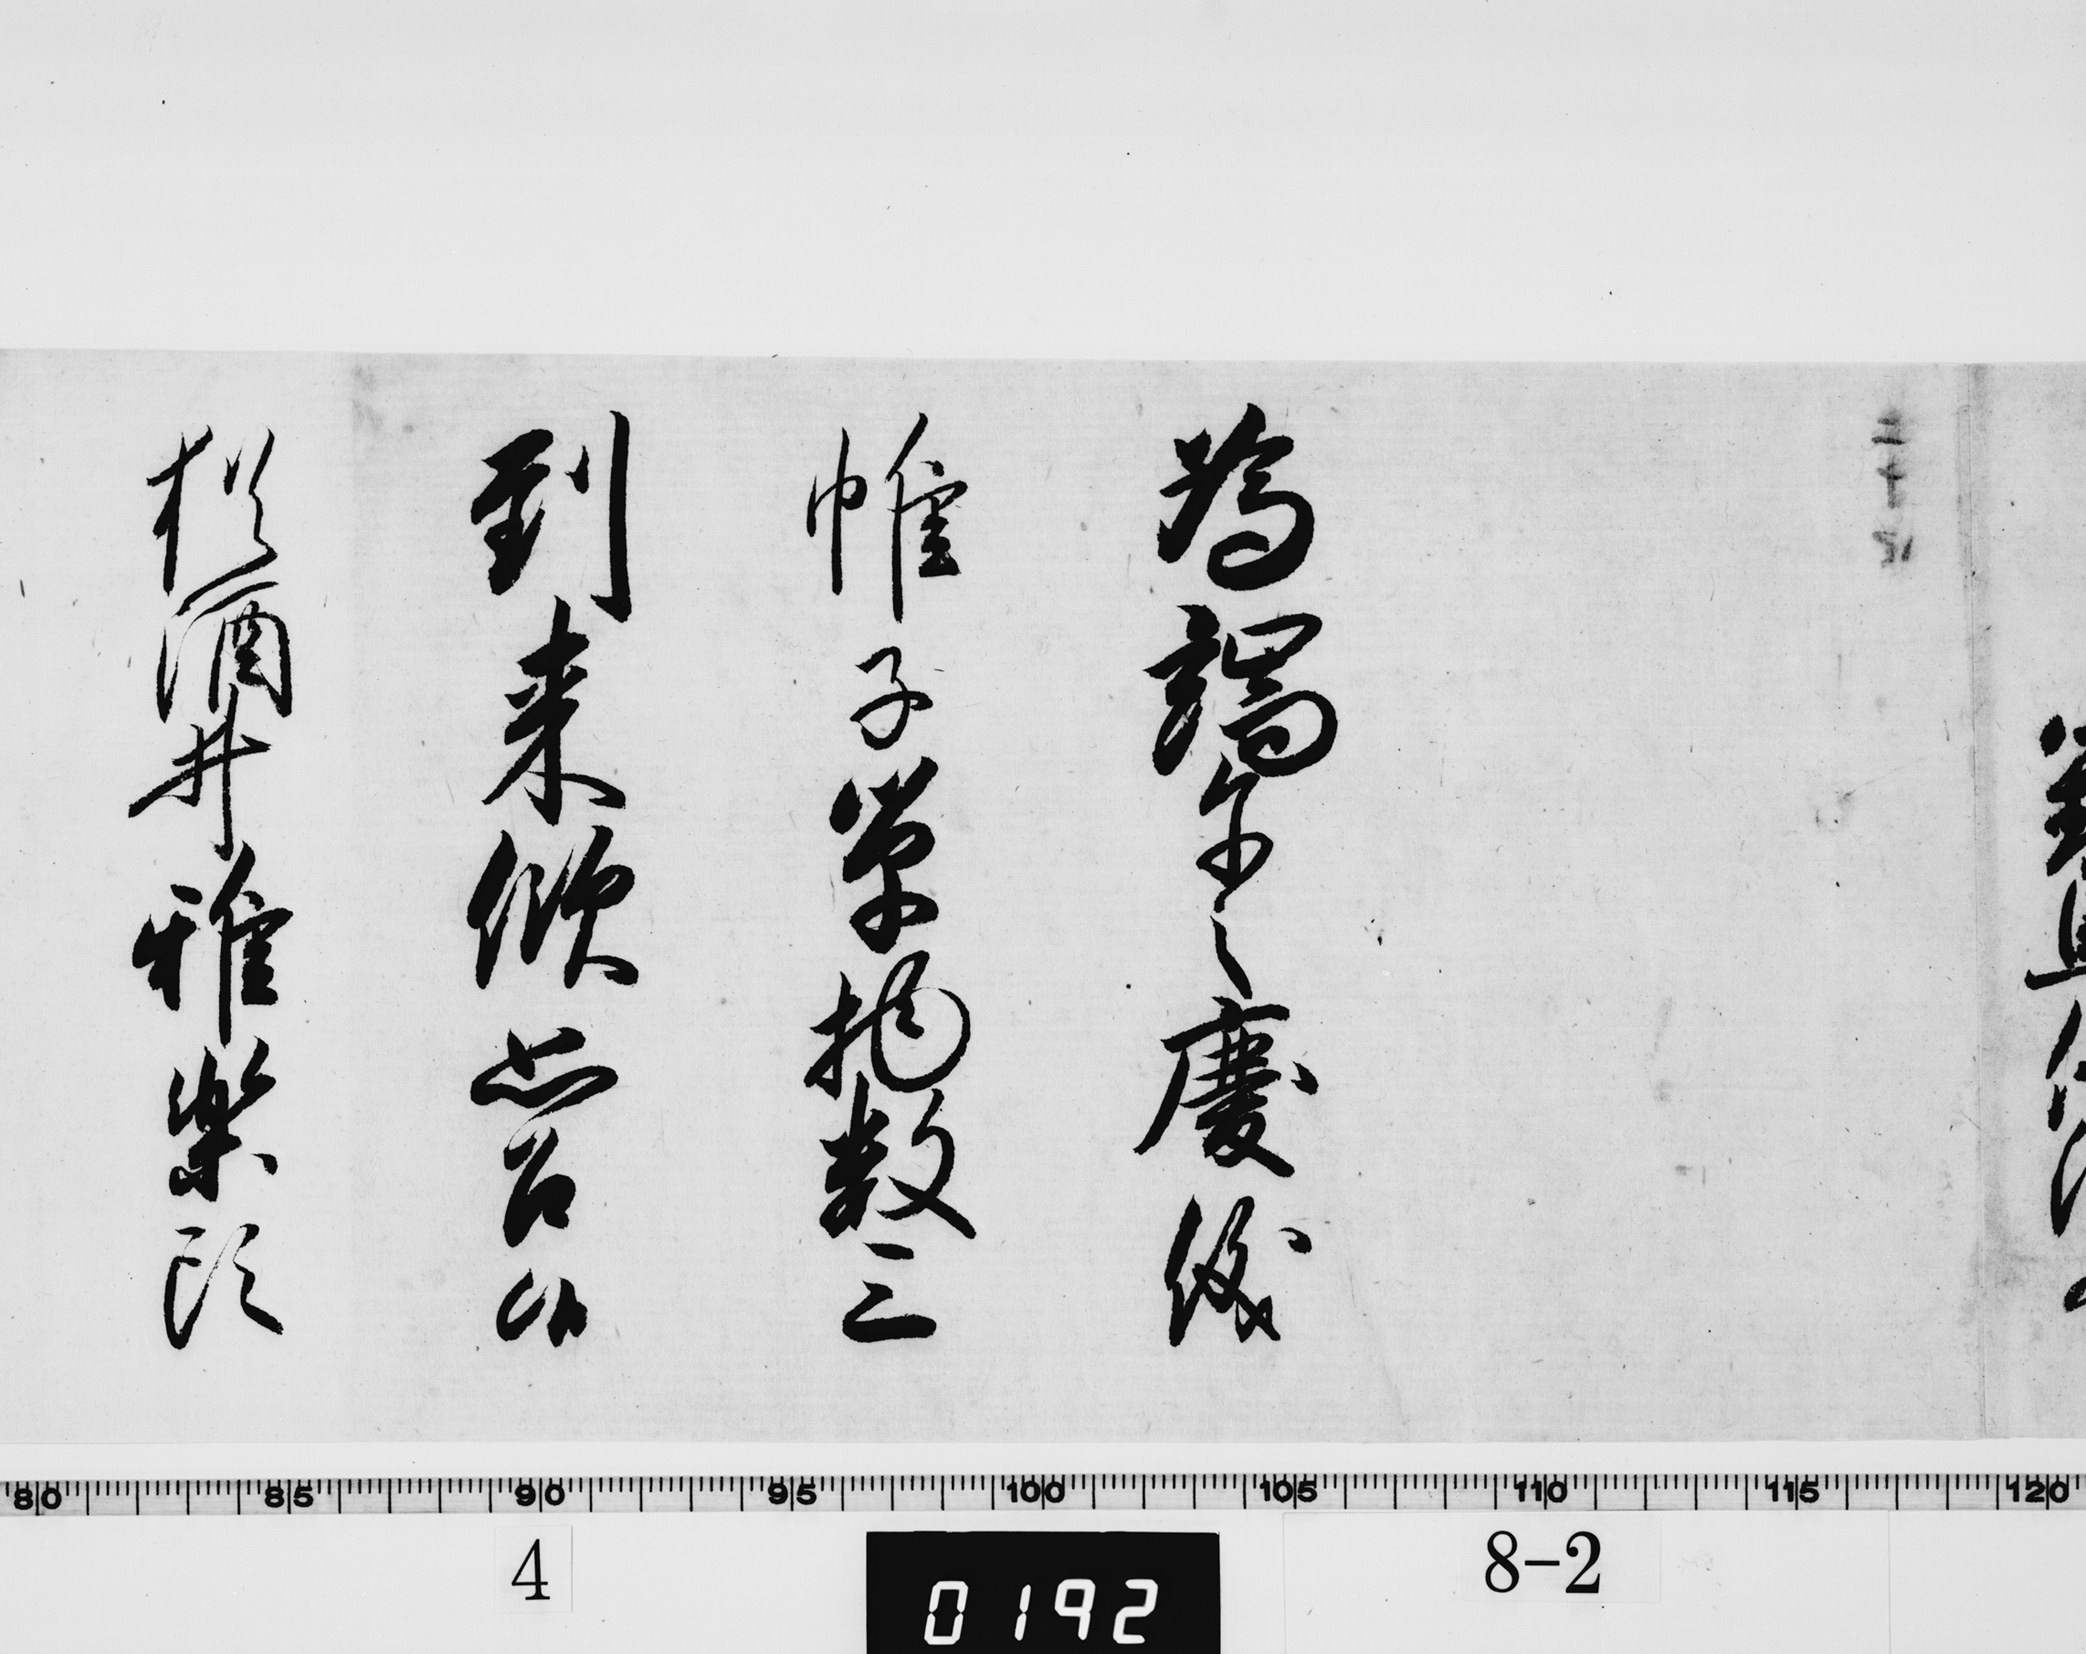 為端午之慶儀
帷子単物数三
到来歓思召候
猶酒井雅楽頭
80 85 90 95 100 105 110 115 120
4 0192 8-2